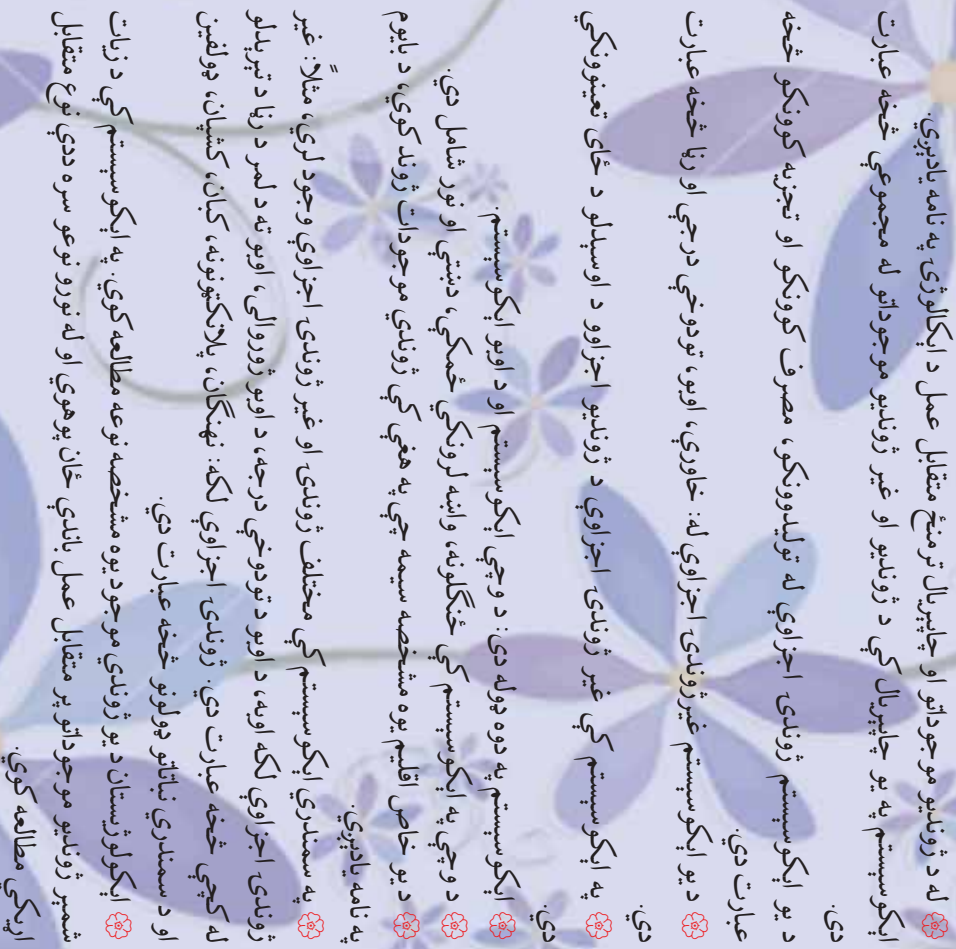 له د ژونديو موجوداتو او چاپيريال ترمنځ متقابل عمل د ايکالوژۍ په نامه ياديږي.
ايکوسيستم په يو چاپيريال کې د ژونديو او غير ژونديو موجوداتو له مجموعې څخه عبارت
دي.
د يو ايکوسيستم ژوندۍ اجزاوې له توليدوونکو، مصرف کوونکو او تجزيه کوونکو څخه
عبارت دي.
د يو ايکوسيستم غير ژوندۍ اجزاوې له: خاورې، اوبو، تودوخې درجې او رڼا څخه عبارت
دي.
په ايکوسيستم کې غير ژوندۍ اجزاوې د ژونديو اجزاوو د اوسيدلو د ځای تعينوونکې
دي.
ايکوسيستم په دوه ډوله دی: د وچې ايکوسيستم او د اوبو ايکوسيستم.
د وچې په ايکوسيستم کې ځنګلونه، واښه لرونکې ځمکې، دښتې او نور شامل دي.
د يو خاص اقليم يوه مشخصه سيمه چې په هغې کې ژوندي موجودات ژوند کوي، د بايوم
په نامه ياديږي.
په سمندري ايکوسيستم کې مختلف ژوندۍ او غير ژوندۍ اجزاوې وجود لري، مثلاً: غير
ژوندۍ اجزاوې لکه اوبه، د اوبو د تودوخې درجه، د اوبو ژوروالی، اوبو ته د لمر د رڼا د تيريدلو
له کچې څخه عبارت دي. ژوندۍ اجزاوې لکه: نهنګان، پلانکټونونه، کبان، کشپان، ډولفين
او د سمندري نباتاتو ډولونو څخه عبارت دي.
ايکولوژستان د يو ژوندي موجود يوه مشخصه نوعه مطالعه کوي. په ايکوسيستم کې د زيات
شمېر ژونديو موجوداتو پر متقابل عمل باندې ځان پوهوي او له نورو نوعو سره ددې نوع متقابل
اړيکې مطالعه کوي.